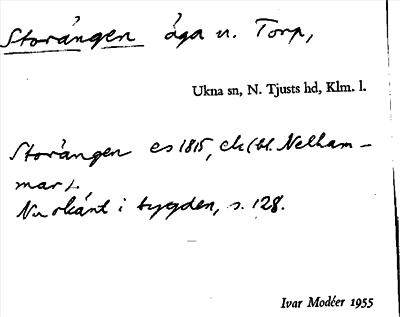 Storängen äga u. Torp,
Ukna sn, N. Tjusts hd, Klm. l.
Storängen es 1815, ck (bl. Nelham-
mar).
Nu okänt i bygden, s. 128.
Ivar Modéer 1955